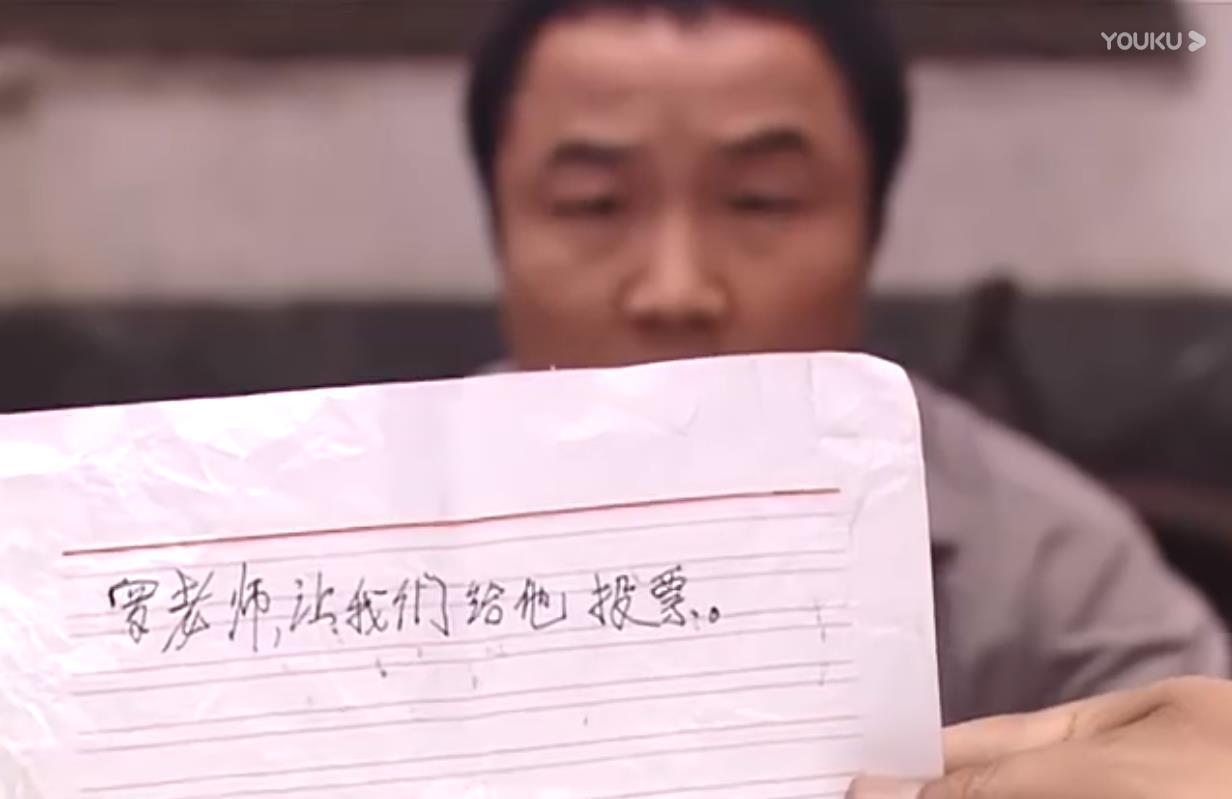 YOUKU
罗老师,让我们给他投票。